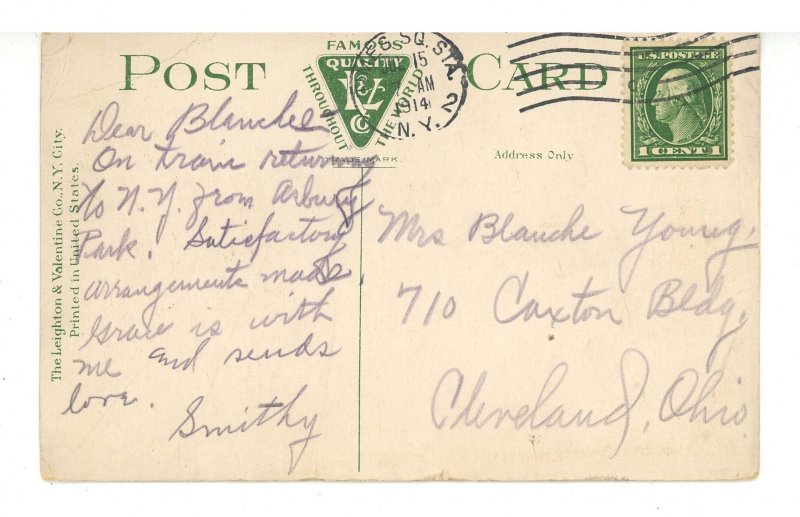 POST CARD
FAMOUS
QUALITY
L&V
Co
THROUGHOUT THE WORLD
TRADE MARK.
SQ. STA.
15
AM
1914
N. Y.
2
U.S. POSTAGE
1 CENT 1
Address Only
The Leighton & Valentine Co., N.Y. City.
Printed in United States.
Dear Blanche
On train return
to N.Y. from Asbury
Park. Satisfactory
arrangements made.
Grace is with
me and sends
love.
Smithy
Mrs Blanche Young.
710 Caxton Bldg.
Cleveland, Ohio